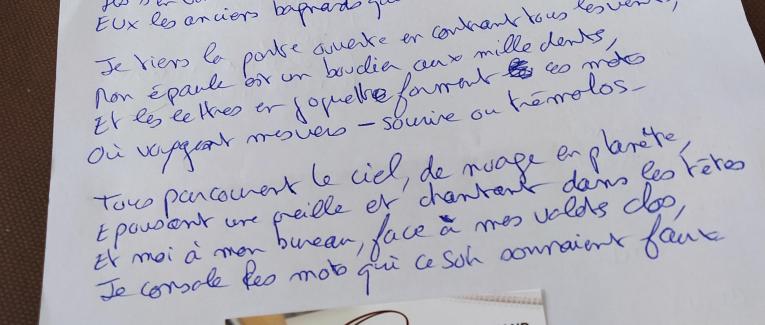 EUX les anciens bagnards
Je tiens la porte ouverte en contrant tous les vents,
Mon épaule est un bouclier aux mille dents,
Et les lettres en goguette forment ces mots
Où voyagent mes vers - sourire ou trémolos -
Tous parcourent le ciel, de nuage en planète,
Epousent une oreille et chantent dans les têtes
Et moi à mon bureau, face à mes volets clos,
Je console les mots qui ce soir sonnaient faux